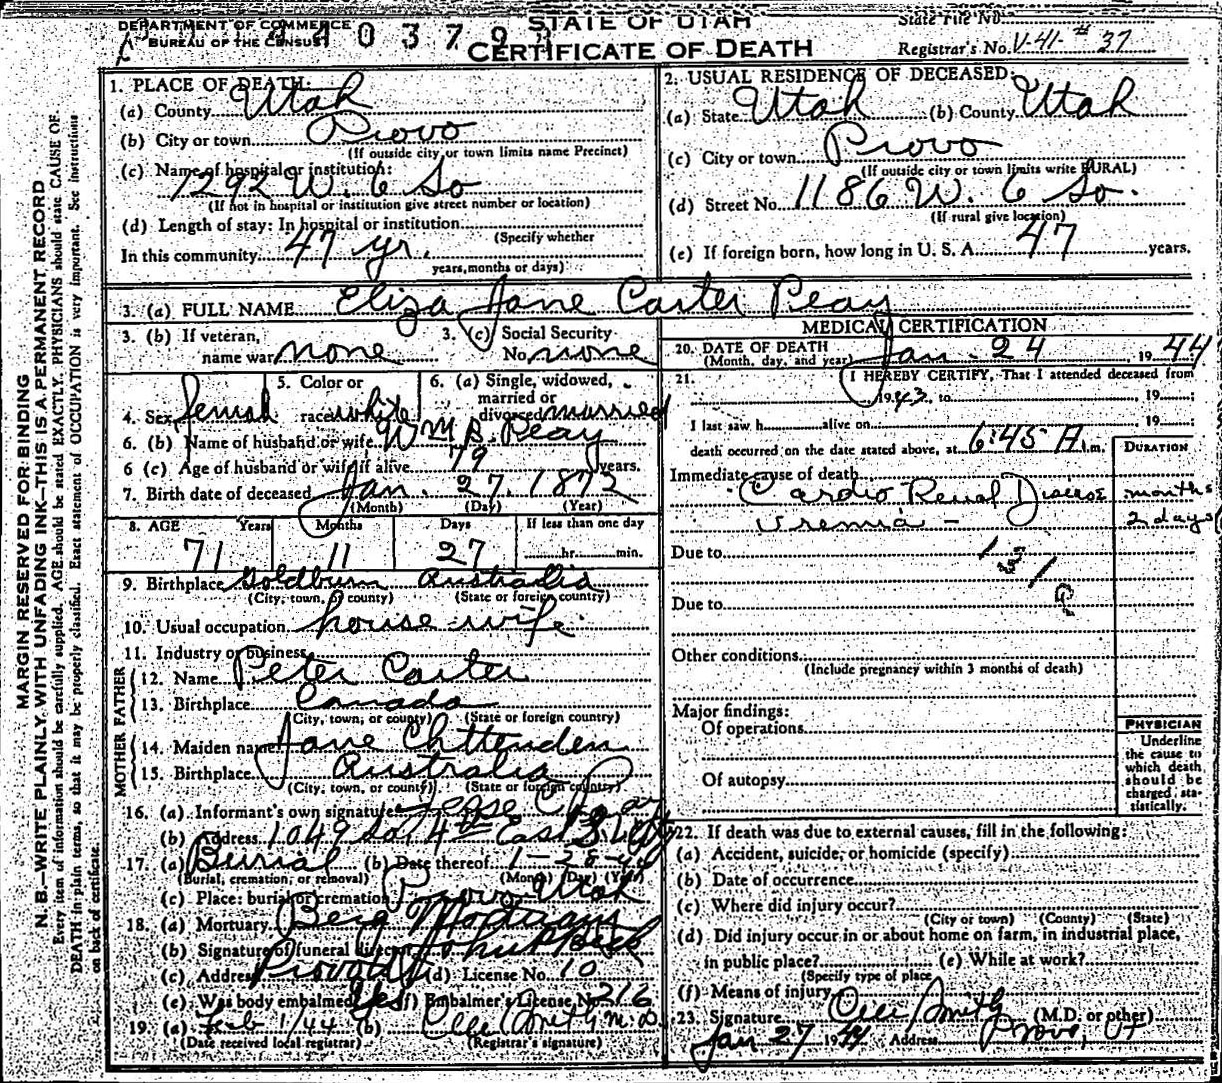 DEPARTMENT OF COMMERCE
BUREAU OF THE CENSUS
STATE OF UTAH
CERTIFICATE OF DEATH
State File No.
Registrar's No. V-41-# 37
MARGIN RESERVED FOR BINDING
N. B.—WRITE PLAINLY, WITH UNFADING INK—THIS IS A PERMANENT RECORD
Every item of information should be carefully supplied. AGE should be stated EXACTLY. PHYSICIANS should state CAUSE OF
DEATH in plain terms, so that it may be properly classified. Exact statement of OCCUPATION is very important. See instructions
on back of certificate.
1. PLACE OF DEATH:
(a) County Utah
(b) City or town Provo
(If outside city or town limits name Precinct)
(c) Name of hospital or institution:
1292 W. 6 So
(If not in hospital or institution give street number or location)
(d) Length of stay: In hospital or institution
(Specify whether
In this community 47 yr.
years, months or days)
2. USUAL RESIDENCE OF DECEASED:
(a) State Utah (b) County Utah
(c) City or town Provo
(If outside city or town limits write RURAL)
(d) Street No. 1186 W. 6 So.
(If rural give location)
(e) If foreign born, how long in U. S. A. 47 years.
3. (a) FULL NAME Eliza Jane Carter Peay
3. (b) If veteran, 3. (c) Social Security
name war none No. none
4. Sex femal 5. Color or race white 6. (a) Single, widowed, married or divorced married
6. (b) Name of husband or wife Wm B. Peay
6 (c) Age of husband or wife if alive 79 years.
7. Birth date of deceased Jan. 27. 1872
(Month) (Day) (Year)
8. AGE Years Months Days If less than one day
71 11 27 hr. min.
9. Birthplace Goldburn Australia
(City, town, or county) (State or foreign country)
10. Usual occupation house-wife
11. Industry or business
FATHER
12. Name Peter Carter
13. Birthplace Canada
(City, town, or county) (State or foreign country)
MOTHER
14. Maiden name Jane Chttenden
15. Birthplace Australia
(City, town, or county) (State or foreign country)
16. (a) Informant's own signature
(b) Address 1049 So. 4th East S L City
17. (a) Burial (b) Date thereof 1-28-44
(Burial, cremation, or removal) (Month) (Day) (Year)
(c) Place: burial or cremation Provo Utah
18. (a) Mortuary Berg Mortuary
(b) Signature of funeral director
(c) Address Provo (d) License No. 10
(e) Was body embalmed Yes (f) Embalmer's License No. 216
19. (a) Feb 1/44 (b) M.D.
(Date received local registrar) (Registrar's signature)
MEDICAL CERTIFICATION
20. DATE OF DEATH
(Month, day, and year) Jan. 24, 1944
21. I HEREBY CERTIFY, That I attended deceased from
1943, to , 19 ;
I last saw h alive on , 19 ;
death occurred on the date stated above, at 6:45 A. m. DURATION
Immediate cause of death
Cardio Renal Disease months
Uremia - 2 days
Due to 131
Due to
Other conditions
(Include pregnancy within 3 months of death)
Major findings:
Of operations
Of autopsy
PHYSICIAN
Underline
the cause to
which death
should be
charged sta-
tistically.
22. If death was due to external causes, fill in the following:
(a) Accident, suicide, or homicide (specify)
(b) Date of occurrence
(c) Where did injury occur?
(City or town) (County) (State)
(d) Did injury occur in or about home on farm, in industrial place,
in public place? (e) While at work?
(Specify type of place
(f) Means of injury
23. Signature Smith (M.D. or other)
Jan 27 1944 Address Provo, Ut